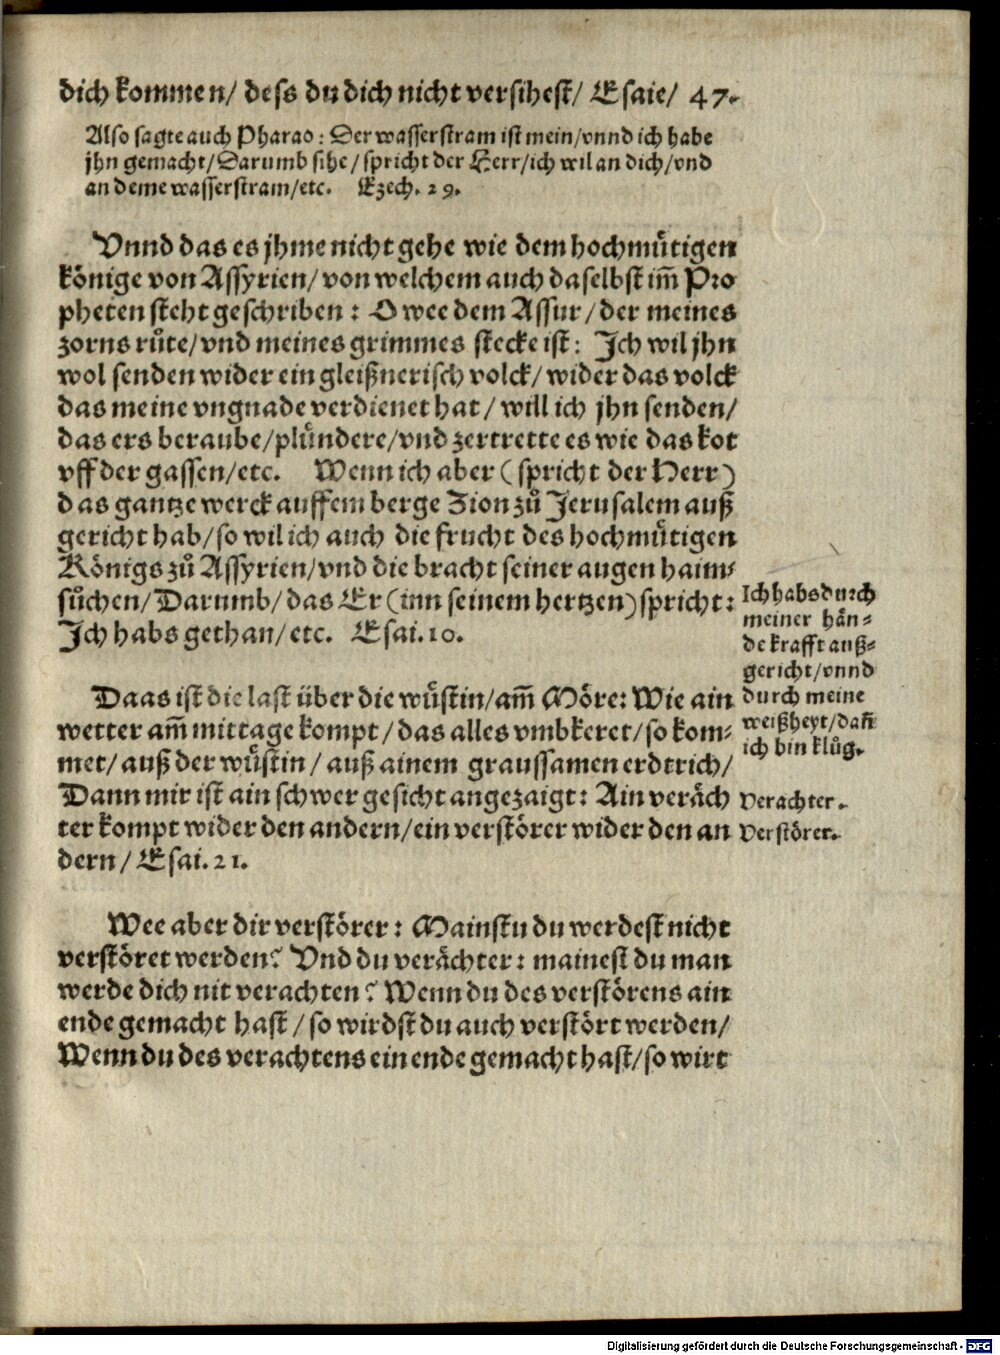 dich kommen/ dess du dich nicht versihest/ Esaie/ 47.
Also sagte auch Pharao: Der wasserstram ist mein/vnnd ich habe
jhn gemacht/Darumb sihe/spricht der Herr/ich wil an dich/vnd
an deme wasserstram/etc. Ezech. 29.
Vnnd das es jhme nicht gehe wie dem hochmuͤtigen
koͤnige von Assyrien/von welchem auch daselbst im̃ Pro
pheten steht geschriben: O wee dem Assur/der meines
zorns ruͦte/vnd meines grimmes stecke ist: Ich wil jhn
wol senden wider ein gleißnerisch volck/wider das volck
das meine vngnade verdienet hat/will ich jhn senden/
das ers beraube/pluͤndere/vnd zertrette es wie das kot
vff der gassen/etc. Wenn ich aber (spricht der Herr)
das gantze werck auffem berge Zion zuͦ Jerusalem auß
gericht hab/so wil ich auch die frucht des hochmuͤtigen
Koͤnigs zuͦ Assyrien/vnd die bracht seiner augen haim⸗
suͦchen/Darumb/das Er (inn seinem hertzen) spricht:
Ich habs gethan/etc. Esai.10.
Ich habs durch
meiner haͤn⸗
de krafft auß⸗
gericht/vnnd
durch meine
weißheyt/dañ
ich bin kluͦg.
Daas ist die last uͤber die wuͤstin/am̃ Moͤre: Wie ain
wetter am̃ mittage kompt/das alles vmbkeret/so kom⸗
met/auß der wuͤstin/auß ainem graussamen erdtrich/
Dann mir ist ain schwer gesicht angezaigt: Ain veraͤch
ter kompt wider den andern/ein verstoͤrer wider den an
dern/Esai.21.
Verachter.
Verstoͤrer.
Wee aber dir verstoͤrer: Mainstu du werdest nicht
verstoͤret werden? Vnd du veraͤchter: mainest du man
werde dich nit verachten? Wenn du des verstoͤrens ain
ende gemacht hast/so wirdst du auch verstoͤrt werden/
Wenn du des verachtens ein ende gemacht hast/so wirt
Digitalisierung gefördert durch die Deutsche Forschungsgemeinschaft - DFG